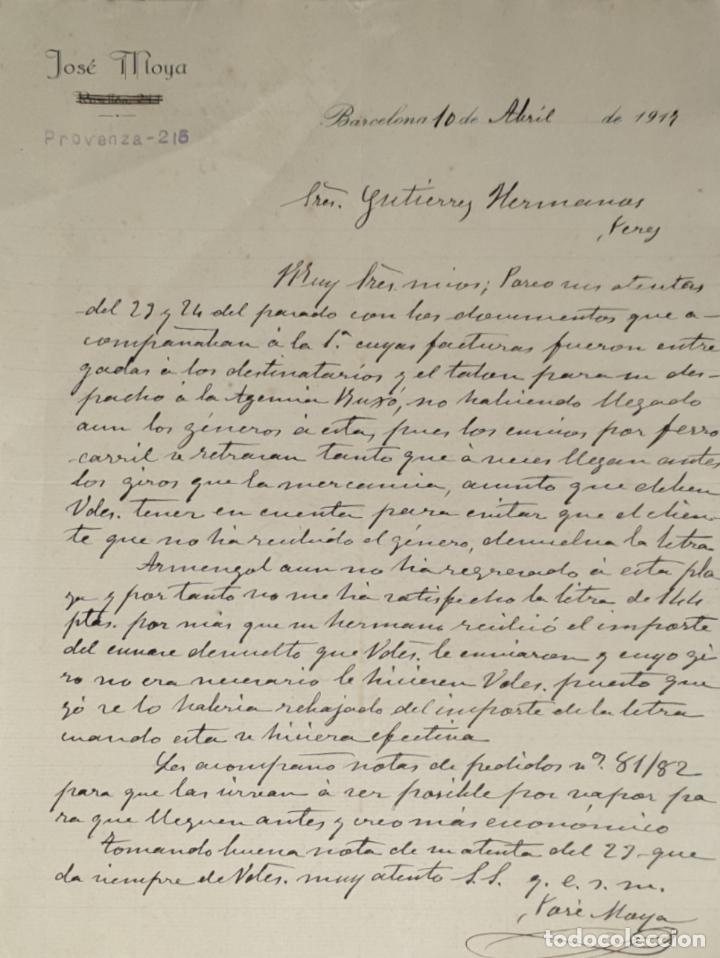 José Moya
Provenza-215
Barcelona 10 de Abril de 1917
Sres. Gutierrez Hermanos
Xerez
Muy Sres. mios; Poseo sus atentas
del 23 y 24 del pasado con los documentos que a-
compañaban á la 1ª. cuyas facturas fueron entre
gadas á los destinatarios y el talon para su des-
pacho á la Agencia Buxó, no habiendo llegado
aun los géneros á esta, pues los envios por ferro
carril se retrasan tanto que á veces llegan antes
los giros que la mercancia, asunto que deben
Vdes. tener en cuenta para evitar que el clien-
te que no ha recibido el género, devuelva la letra
Armengol aun no ha regresado á esta pla
za y por tanto no me há satisfecho la letra de 144
ptas. por más que su hermano recibió el importe
del envase devuelto que Vdes. le enviaron y cuyo gi
ro no era necesario le hicieren Vdes. puesto que
yó se lo habria rebajado del importe de la letra
cuando esta se hiciera efectiva
Les acompaño notas de pedidos nº. 81/82
para que las sirvan á ser posible por vapor pa
ra que lleguen antes y creo más económico
Tomando buena nota de su atenta del 23 que
da siempre de Vdes. muy atento S.S. q. e. s. m.
José Moya
todocoleccion.net